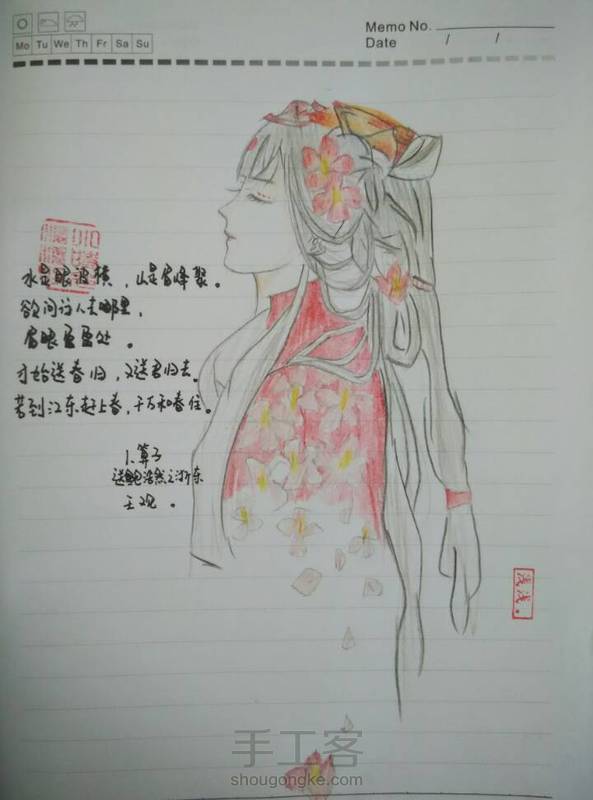 Mo Tu We Th Fr Sa Su
Memo No.
Date / /
水是眼波横，山是眉峰聚。
欲问行人去哪里，
眉眼盈盈处。
才始送春归，又送君归去。
若到江东赶上春，千万和春住。
卜算子
送鲍浩然之浙东
王观。
浅浅。
手工客
shougongke.com